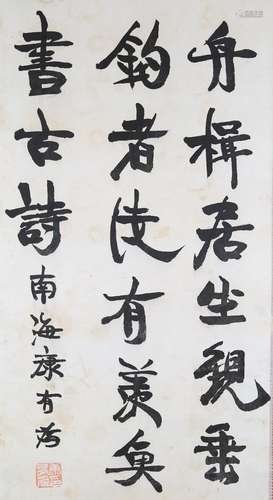 舟楫居坐觀垂
釣者徒有羨魚
書古詩
南海康有為